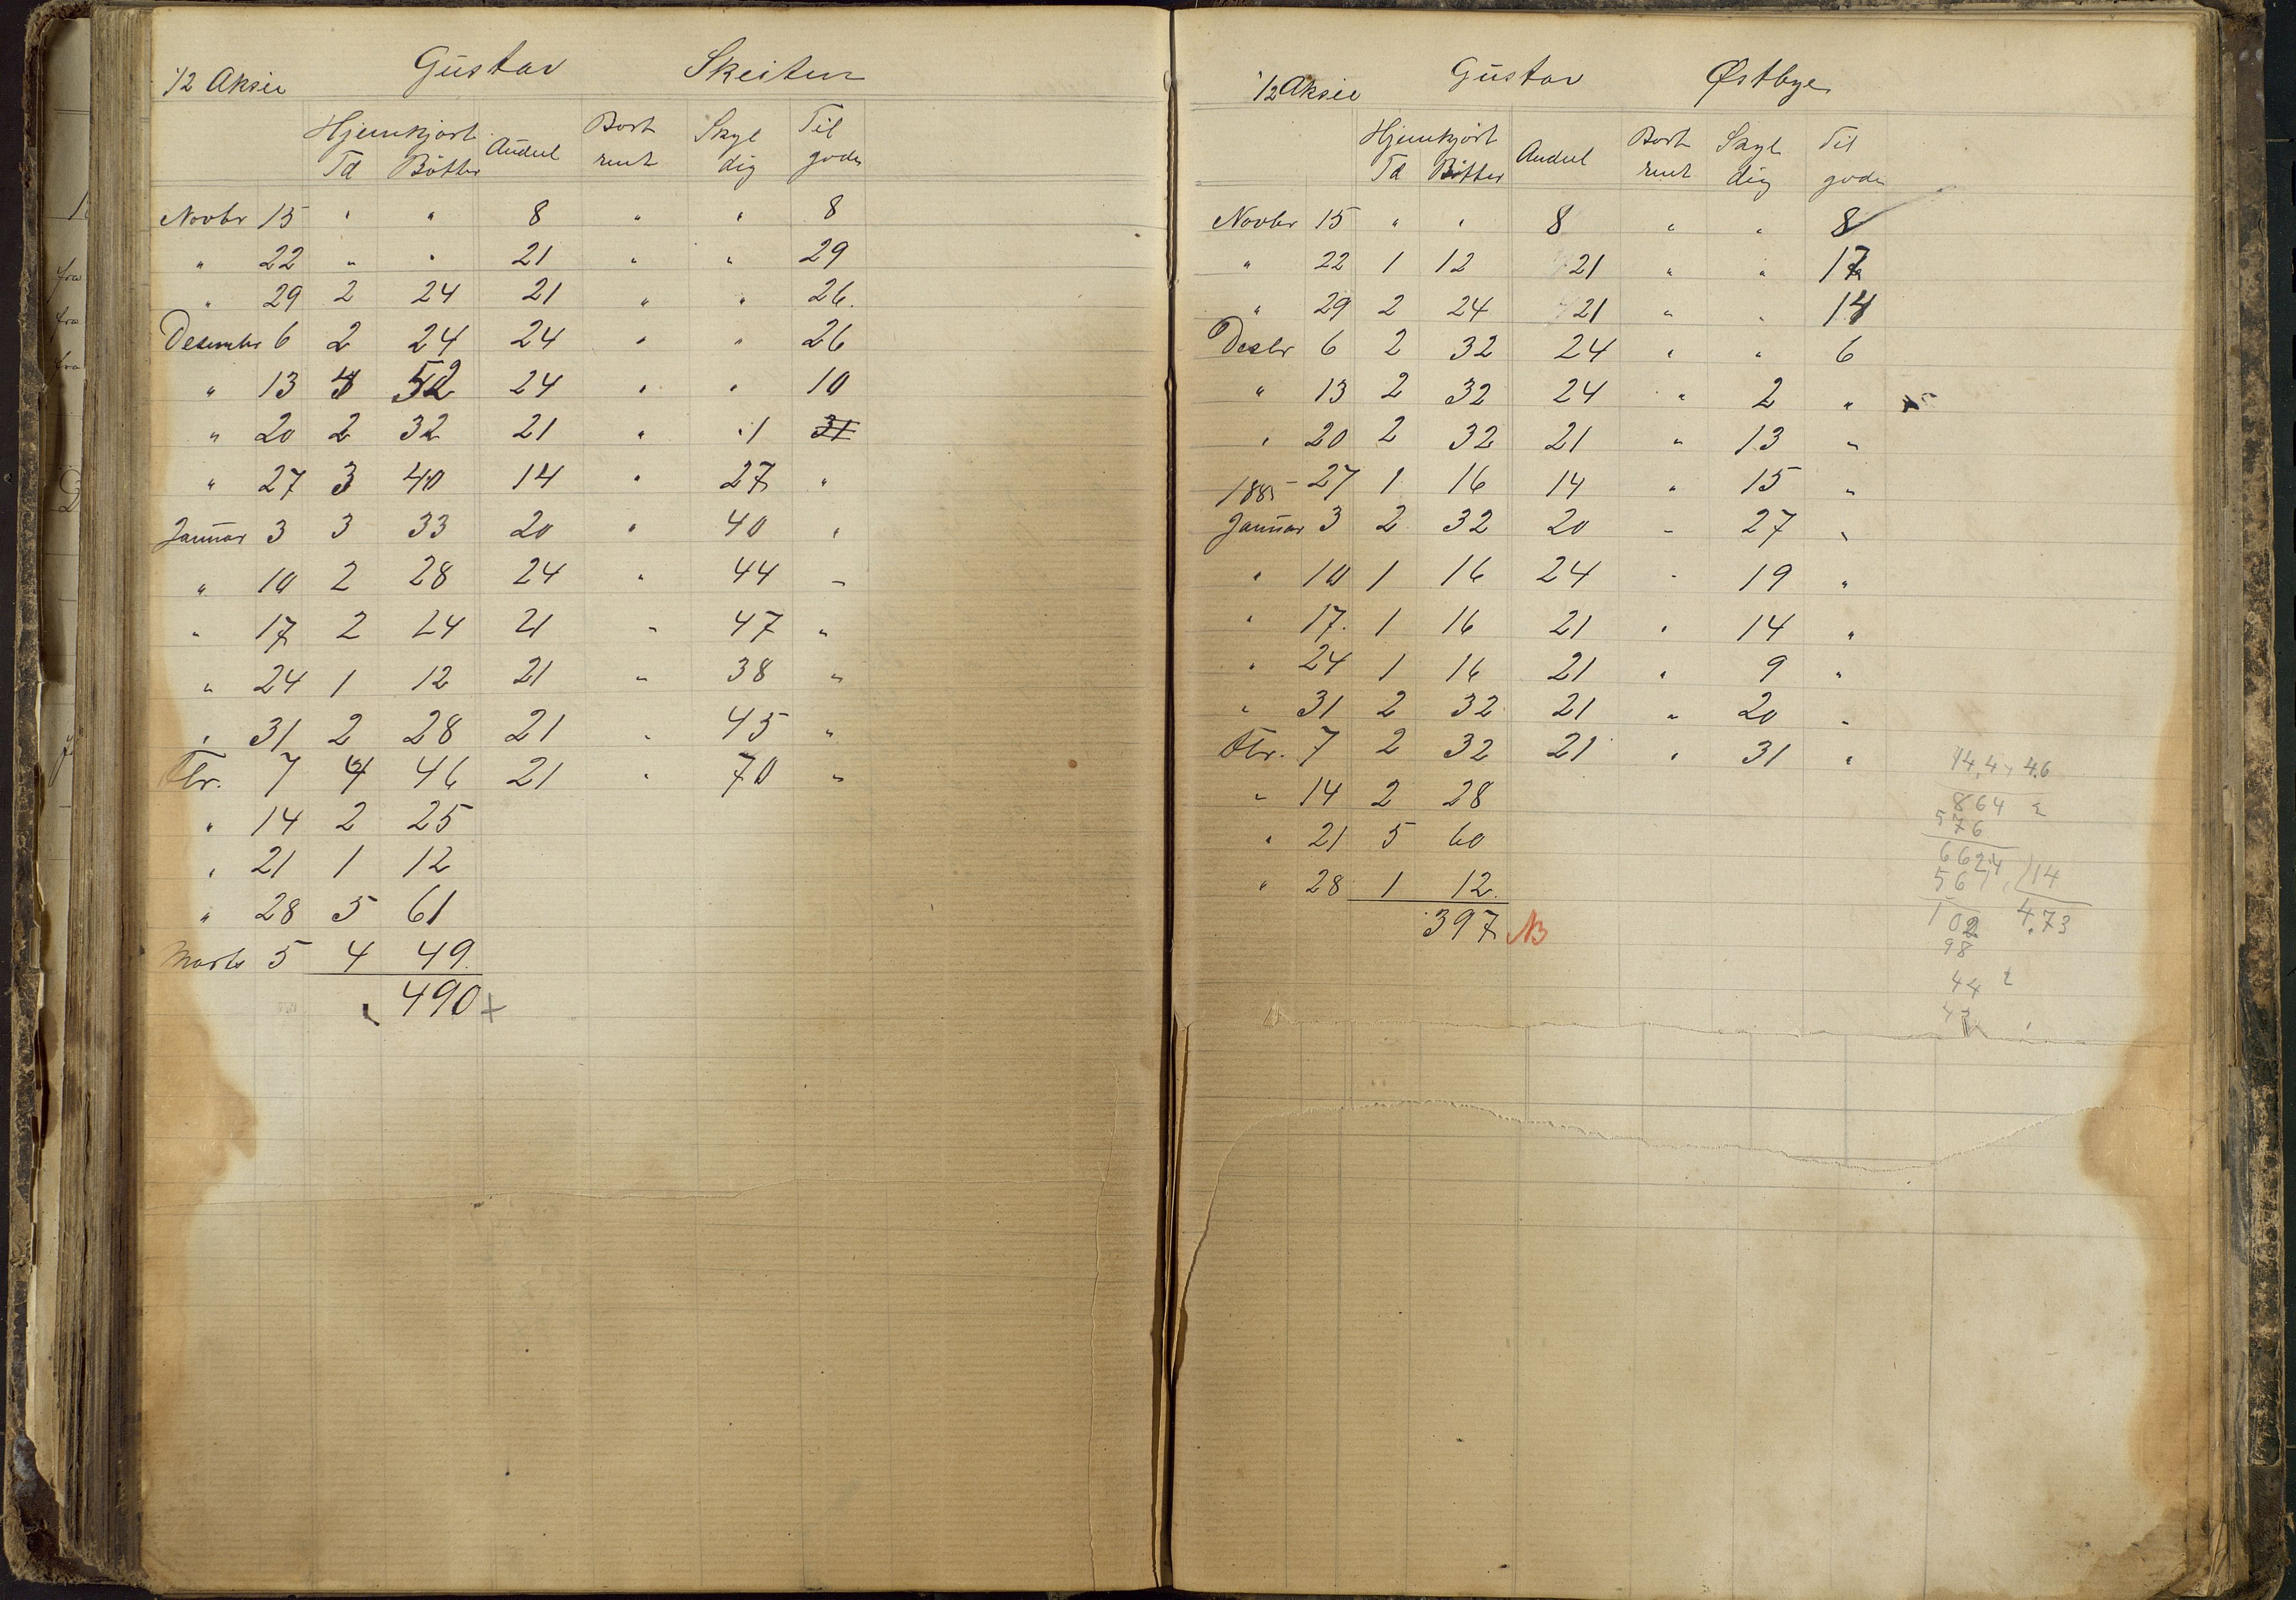 1/2 Aksie Gustav Skeitun
Hjemkjørt Andeel Bort Skyl Til
Td Bøtter rent dig gode
Novbr 15 " " 8 " " 8
" 22 " " 21 " " 29
" 29 2 24 21 " " 26.
Desembr 6 2 24 24 " " 26
" 13 4 24 " " 10
" 20 2 32 21 " 1 31
" 27 3 40 14 " 27 "
Januar 3 3 33 20 " 40 "
" 10 2 28 24 " 44 "
" 17 2 24 21 " 47 "
" 24 1 12 21 " 38 "
" 31 2 28 21 " 45 "
Fbr. 7 4 46 21 " 70 "
" 14 2 25
" 21 1 12
" 28 5 61
Marts 5 4 49
490 +
1/2 Aksie Gustav Østbye
Hjemkjørt Andeel Bort Skyl Til
Td Bøtter rent dig gode
Novbr 15 " " 8 " " 8
" 22 1 12 21 " " 17
" 29 2 24 21 " " 14
Desbr 6 2 32 24 " " 6
" 13 2 32 24 " 2 "
" 20 2 32 21 " 13 "
27 1 16 14 " 15 "
1885
Januar 3 2 32 20 " 27 "
" 10 1 16 24 " 19 "
" 17. 1 16 21 " 14 "
" 24 1 16 21 " 9 "
" 31 2 32 21 " 20 "
Fbr. 7 2 32 21 " 31 "
" 14 2 28
" 21 5 60
" 28 1 12.
397 NB
14,4 4.6
864
576
6624 14
56 4.73
102
98
44